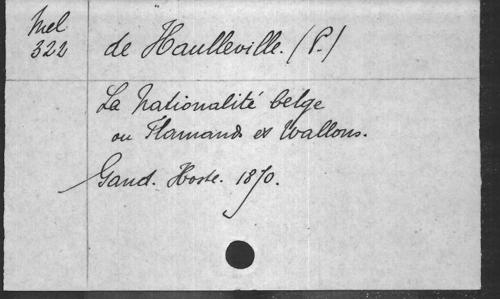 Mel
322
de Haulleville. (P.)
La Nationalité belge
ou Flamands et Wallons.
Gand. Hoste. 1870.